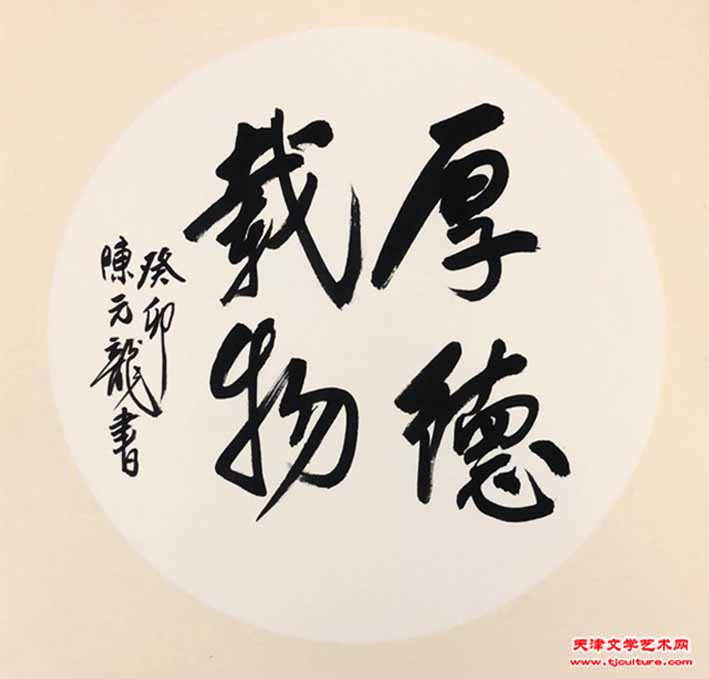 厚德
载物
癸卯
陳元龍書
天津文学艺术网
www.tjculture.com